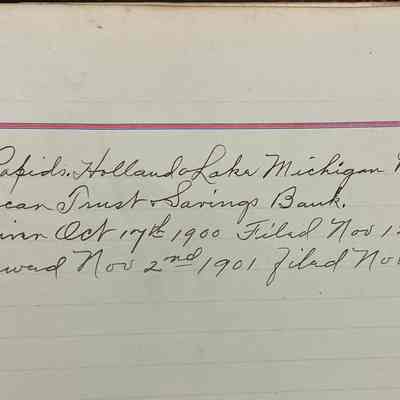 Rapids, Holland & Lake Michigan
ican Trust & Savings Bank.
Oct 17th 1900 Filed Nov 1
Nov 2nd 1901 filed No